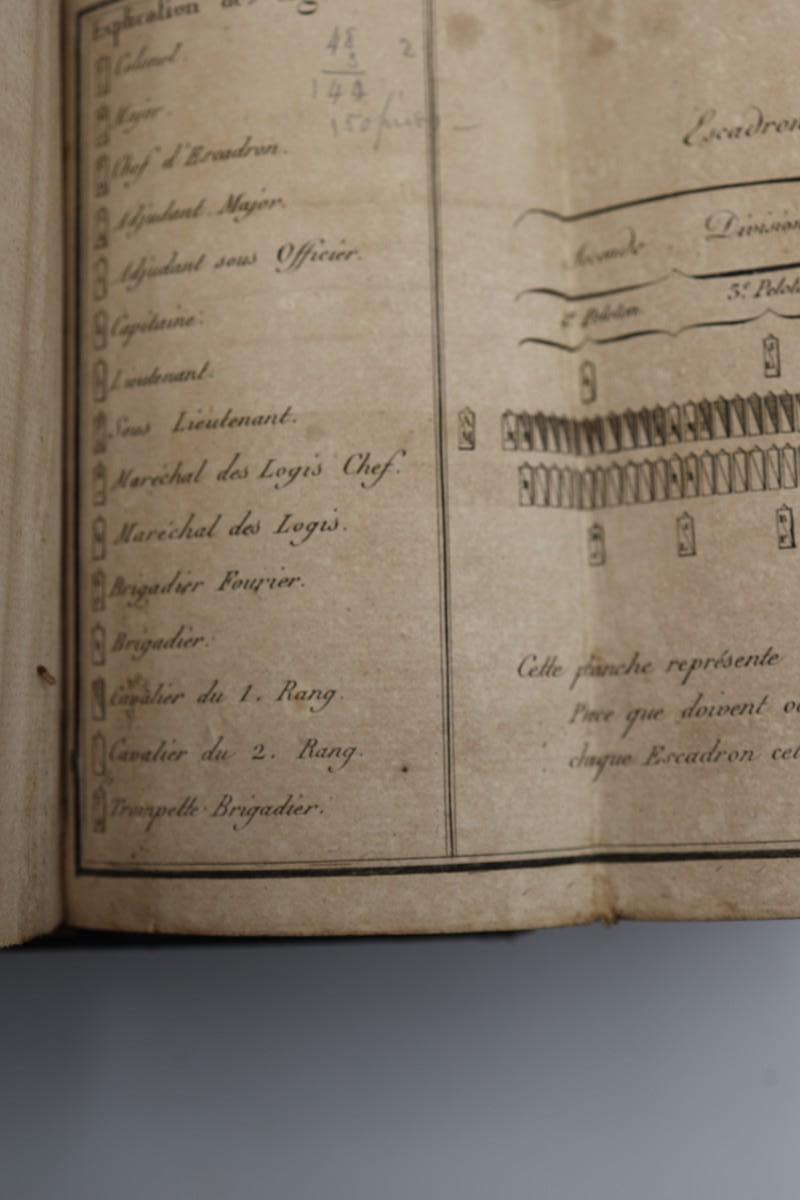 Explication des
Colonel.
Major.
Chef d'Escadron.
Adjudant Major.
Adjudant sous Officier.
Capitaine.
Lieutenant.
Sous Lieutenant.
Maréchal des Logis Chef.
Maréchal des Logis.
Brigadier Fourier.
Brigadier.
Cavalier du 1. Rang.
Cavalier du 2. Rang.
Trompette Brigadier.
48 2
3
144
150
Escadron
Seconde Division
4e Peloton. 3e Pelot
Cette planche représente
Place que doivent oc
chaque Escadron cet